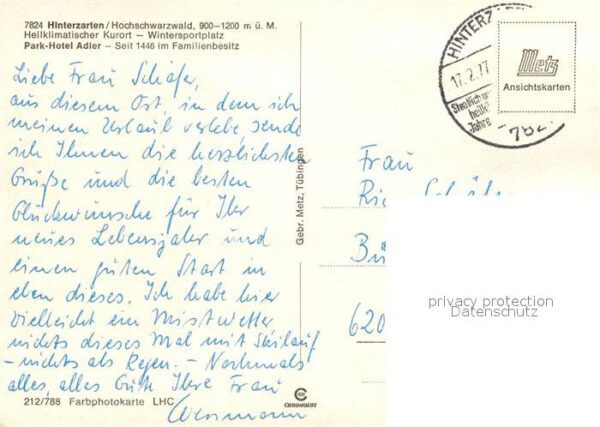 7824 Hinterzarten / Hochschwarzwald, 900–1200 m ü. M.
Heilklimatischer Kurort – Wintersportplatz
Park-Hotel Adler – Seit 1446 im Familienbesitz
Liebe Frau Schäfer,
aus diesem Ort, in dem ich
meinen Urlaub verlebe, sende
ich Ihnen die herzlichsten
Grüße und die besten
Glückwünsche für Ihr
neues Lebensjahr und
einen guten Start in
eben dieses. Ich habe hier
vielleicht ein Mistwetter,
nichts dieses Mal mit Skilauf
– nichts als Regen. – Nochmals
alles, alles Gute Ihre Frau
212/788 Farbphotokarte LHC
Gebr. Metz, Tübingen
HINTERZ
17.2.77
Jahre
782
Metz
Ansichtskarten
Frau
620
privacy protection
Datenschutz